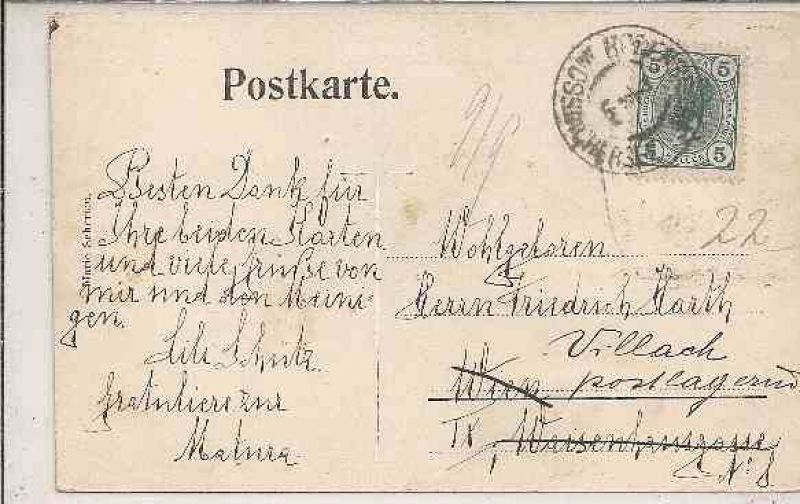 Postkarte.
5 5
5 5
Besten Dank für
Ihre beiden Karten
und viele Grüße von
mir und den Meini-
gen.
Lili Schütz
Gratuliere zur
Matura
Wohlgeboren
Herrn Friedrich Harth
Villach
Wien postlagernd
IX, Waisenhausgasse
No 8
22